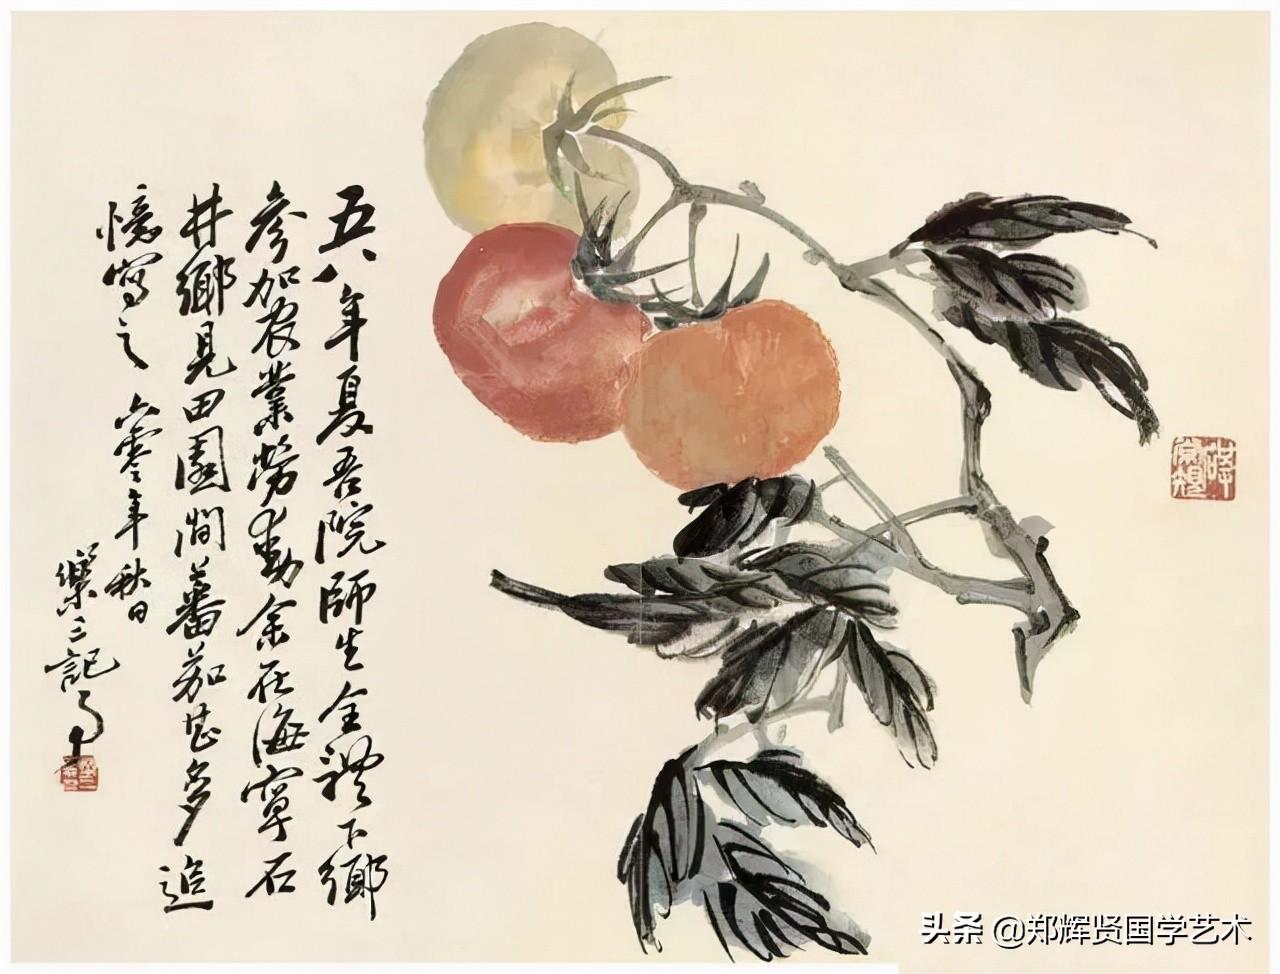 五八年夏吾院師生全體下鄉
參加农業勞動余在海寧石
井鄉見田園間蕃茄甚多追
憶寫之 六零年秋日
樂三記
头条 @郑辉贤国学艺术